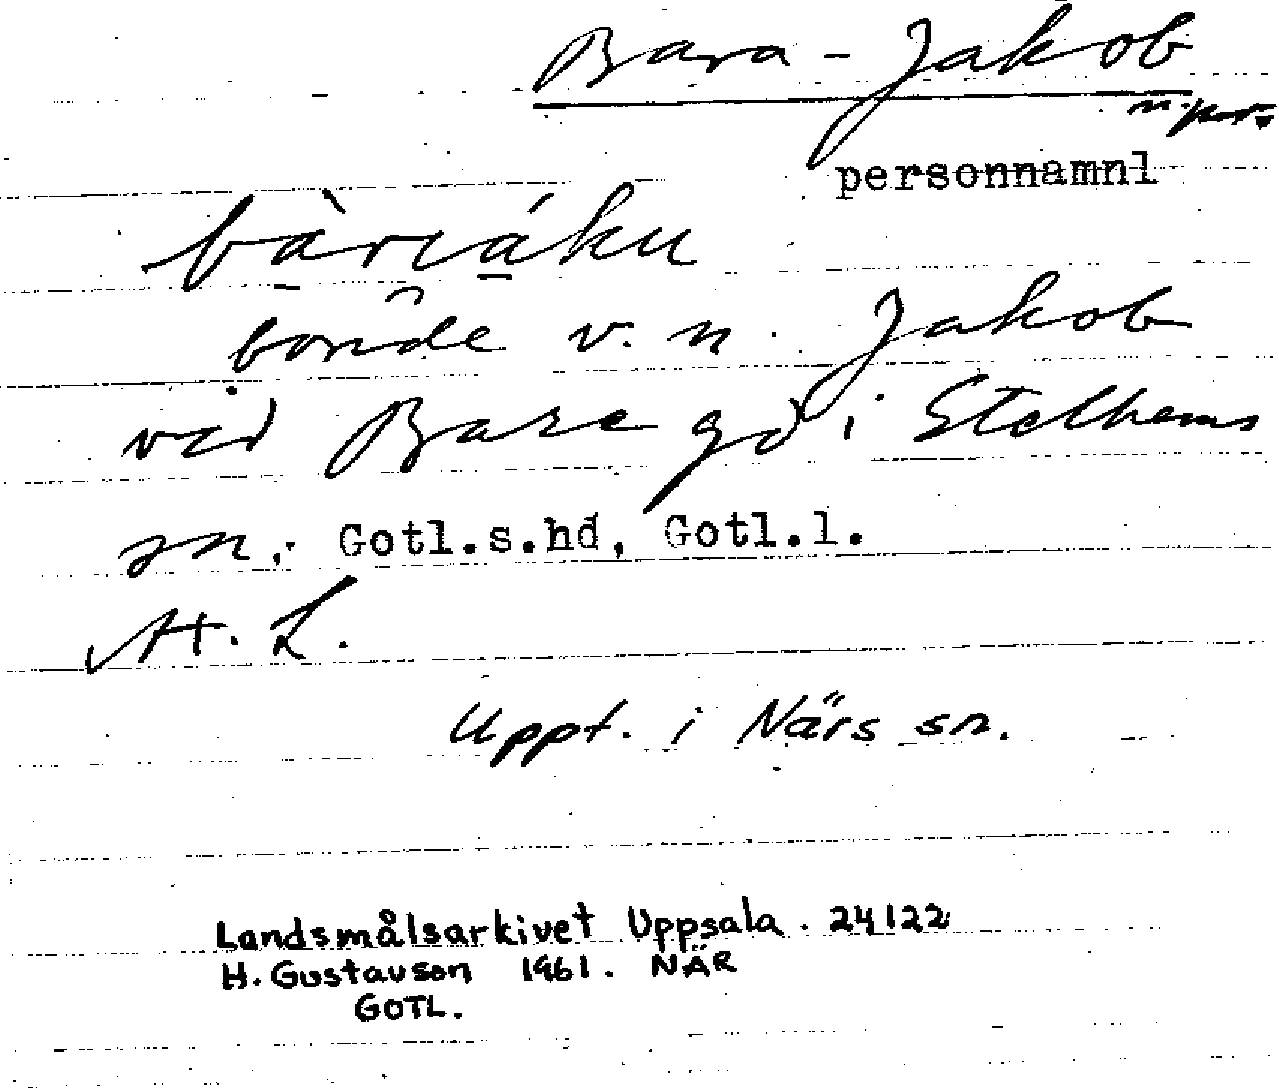 Bara-Jakob
n. prs.
personnamnl
bàriáku
bonde v. n. Jakob
vid Bare gd i Stelhems
sn., Gotl.s.hd, Gotl.l.
H. L.
Uppt. i Närs sn.
Landsmålsarkivet Uppsala. 24122
H. Gustavson 1961. NÄR
GOTL.